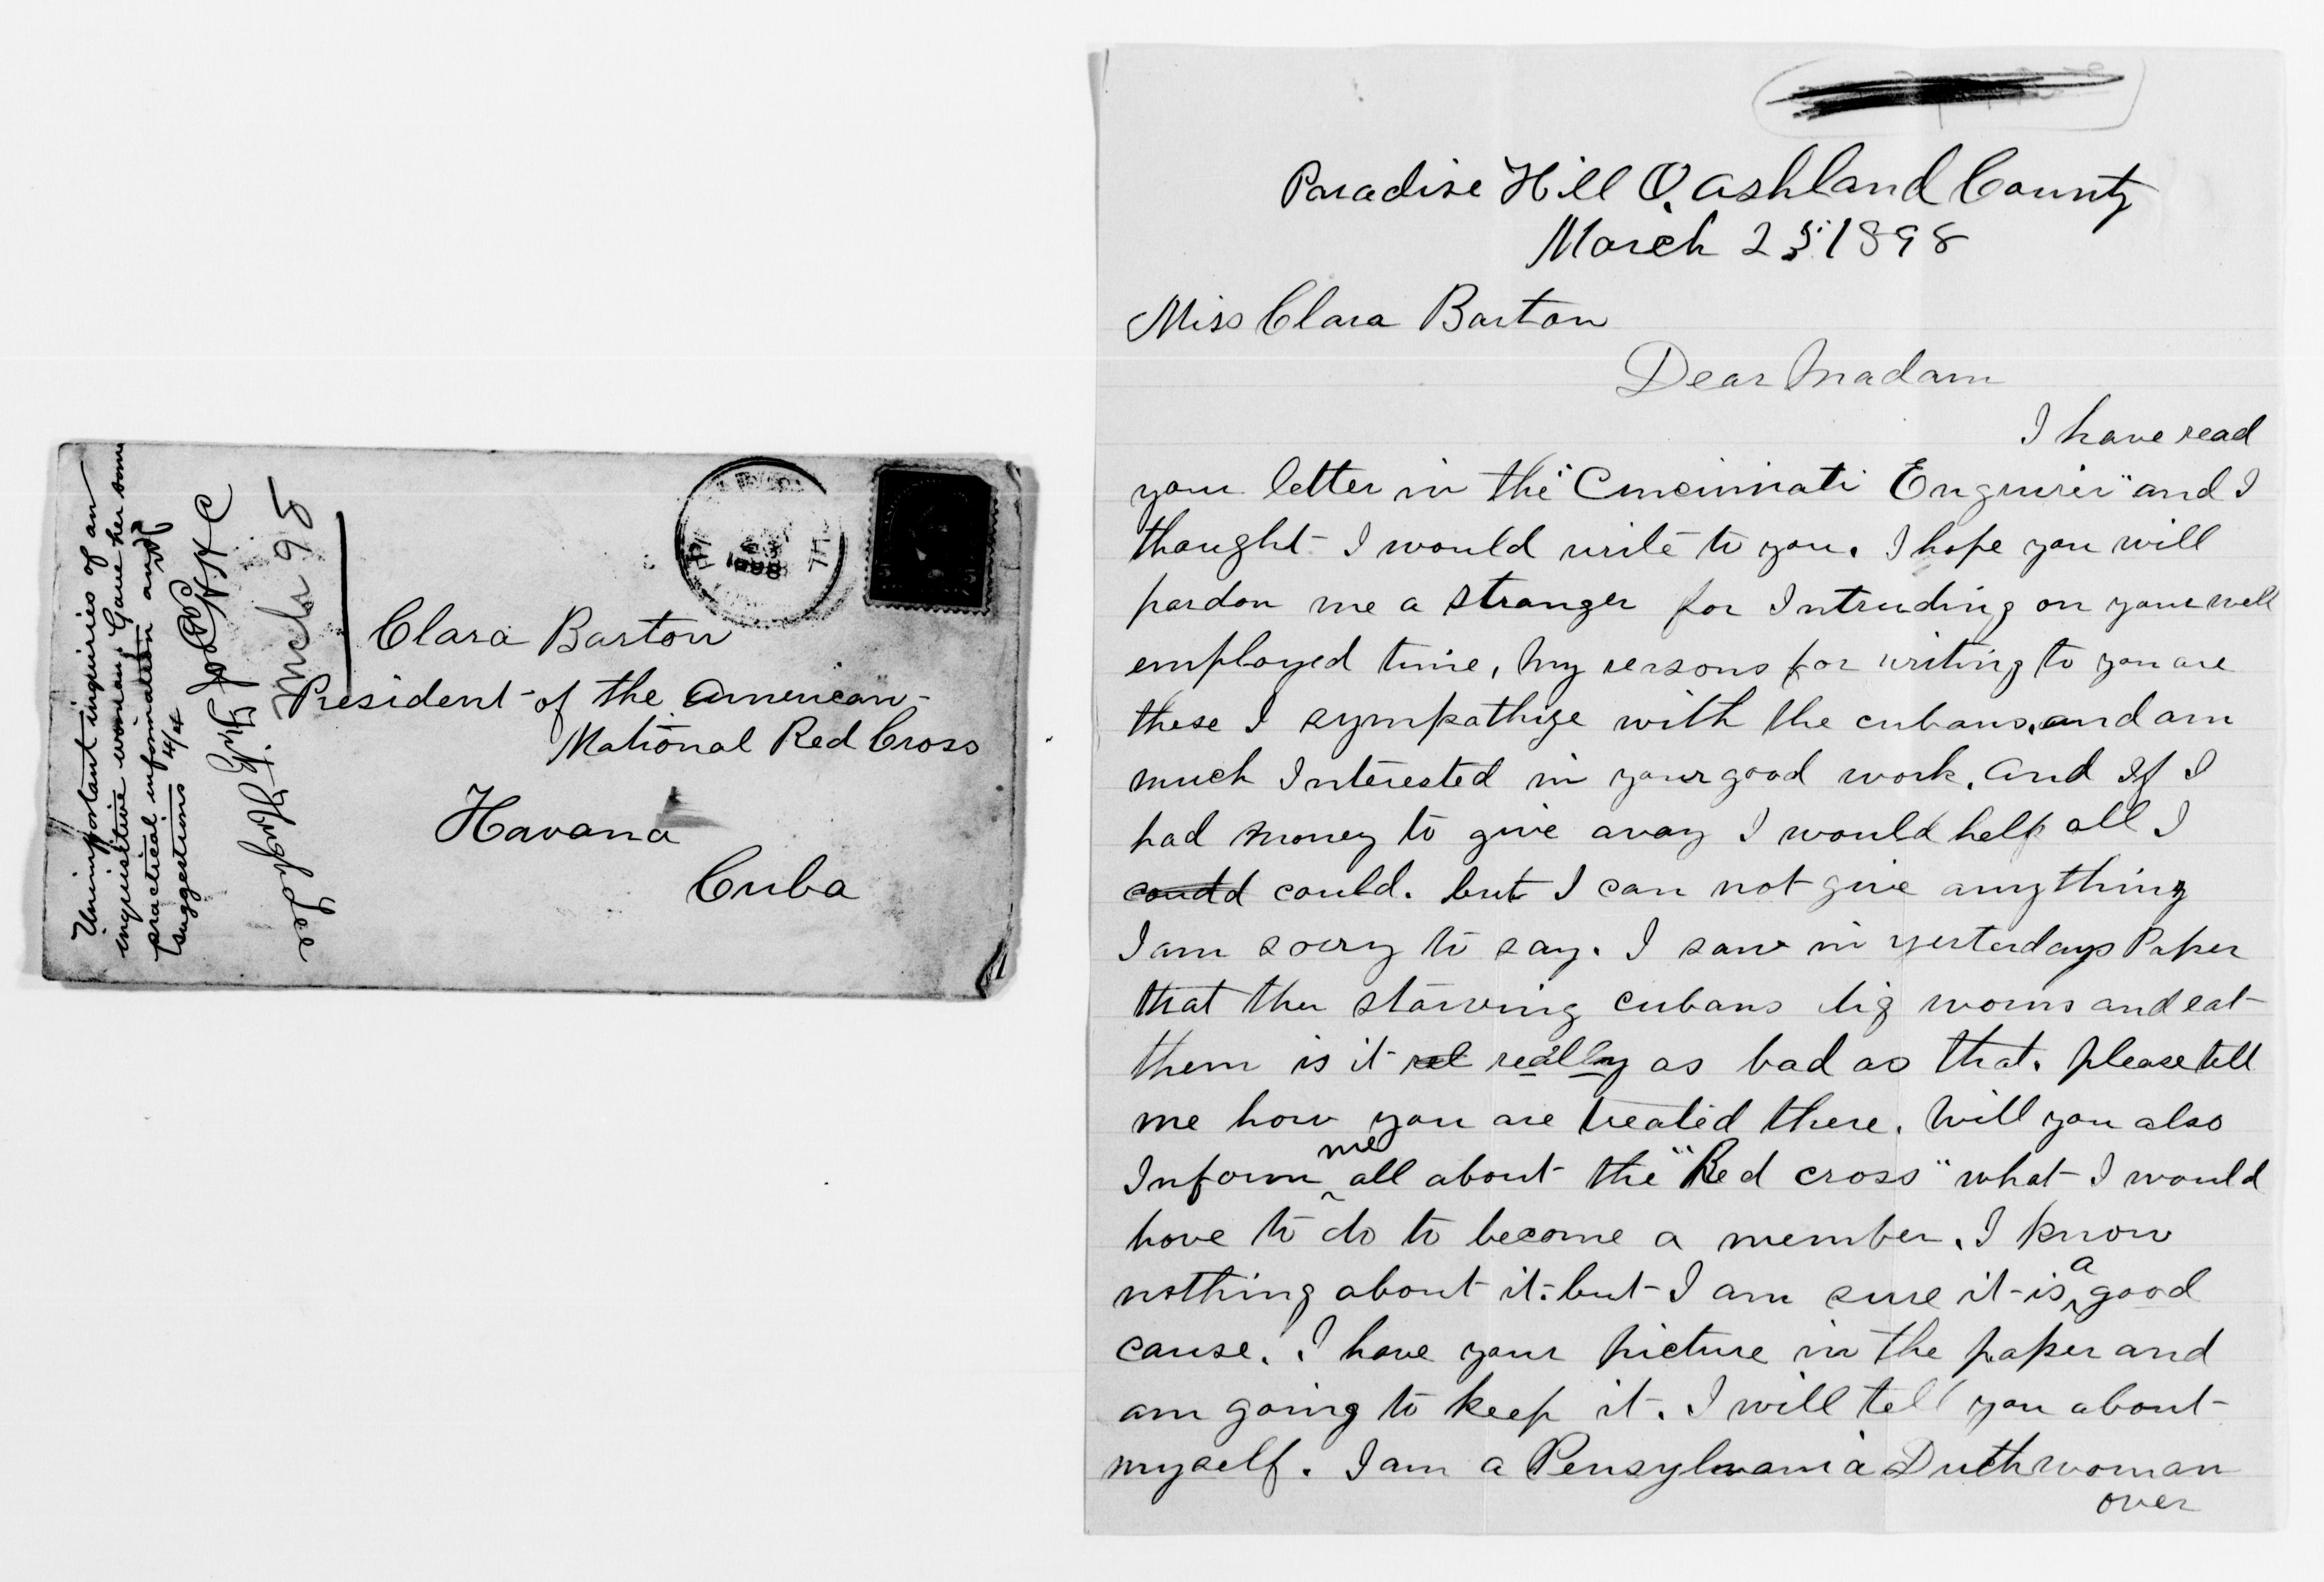 Unimportant inquiries of an
inquisitive woman. Gave her some
practical information and
suggestions 4/4
Mch 98
1898
Clara Barton
President of the American
National Red Cross
Havana
Cuba
Paradise Hill O. Ashland County
March 25. 1898
Miss Clara Barton
Dear Madam
I have read
your letter in the "Cincinnati Enquirer" and I
thought I would write to you. I hope you will
pardon me a stranger for Intruding on your well
employed time, My reasons for writing to you are
these I sympathize with the cubans, and am
much Interested in your good work. and If I
had money to give away I would help all I
could could. but I can not give anything
I am sorry to say. I saw in yesterdays Paper
that the starving cubans dig worms and eat
them is it rel really as bad as that. please tell
me how you are treated there. Will you also
Inform me all about the "Red cross" what I would
have to do to become a member. I know
nothing about it. but I am sure it is a good
cause. I have your picture in the paper and
am going to keep it. I will tell you about
myself. I am a Pensylvania Duthwoman
over